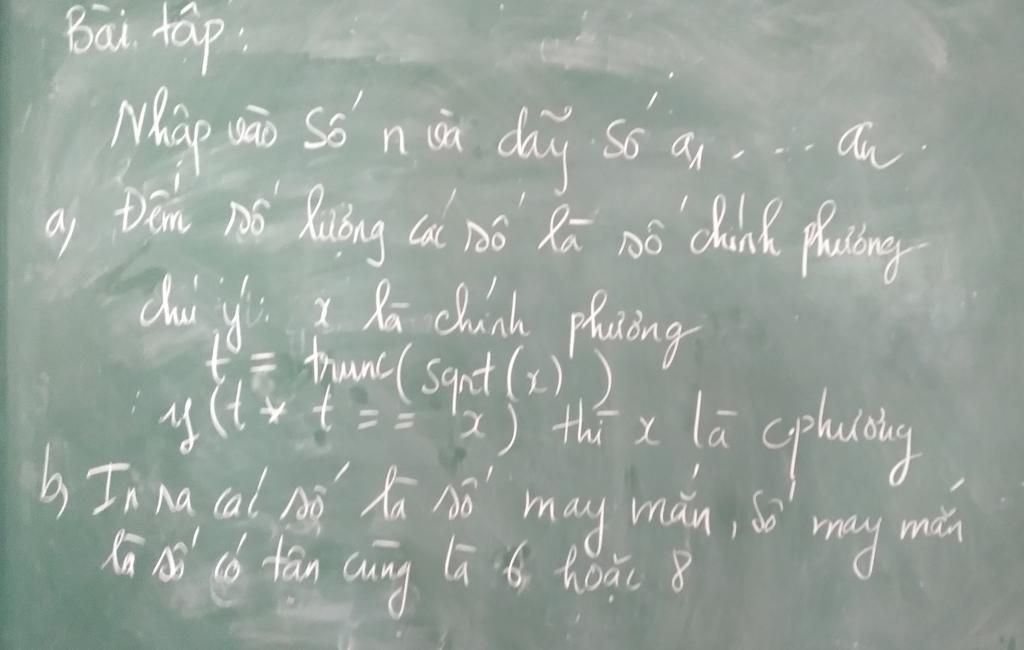 Bài tập:
Nhập vào số n và dãy số a1 .... an.
a, Đếm số lượng các số là số chính phương
chú ý: x là chính phương
t = trunc(sqrt(x))
if (t * t == x) thì x là c.phương
b, In ra các số là số may mắn, số may mắn
là số có tận cùng là 6 hoặc 8